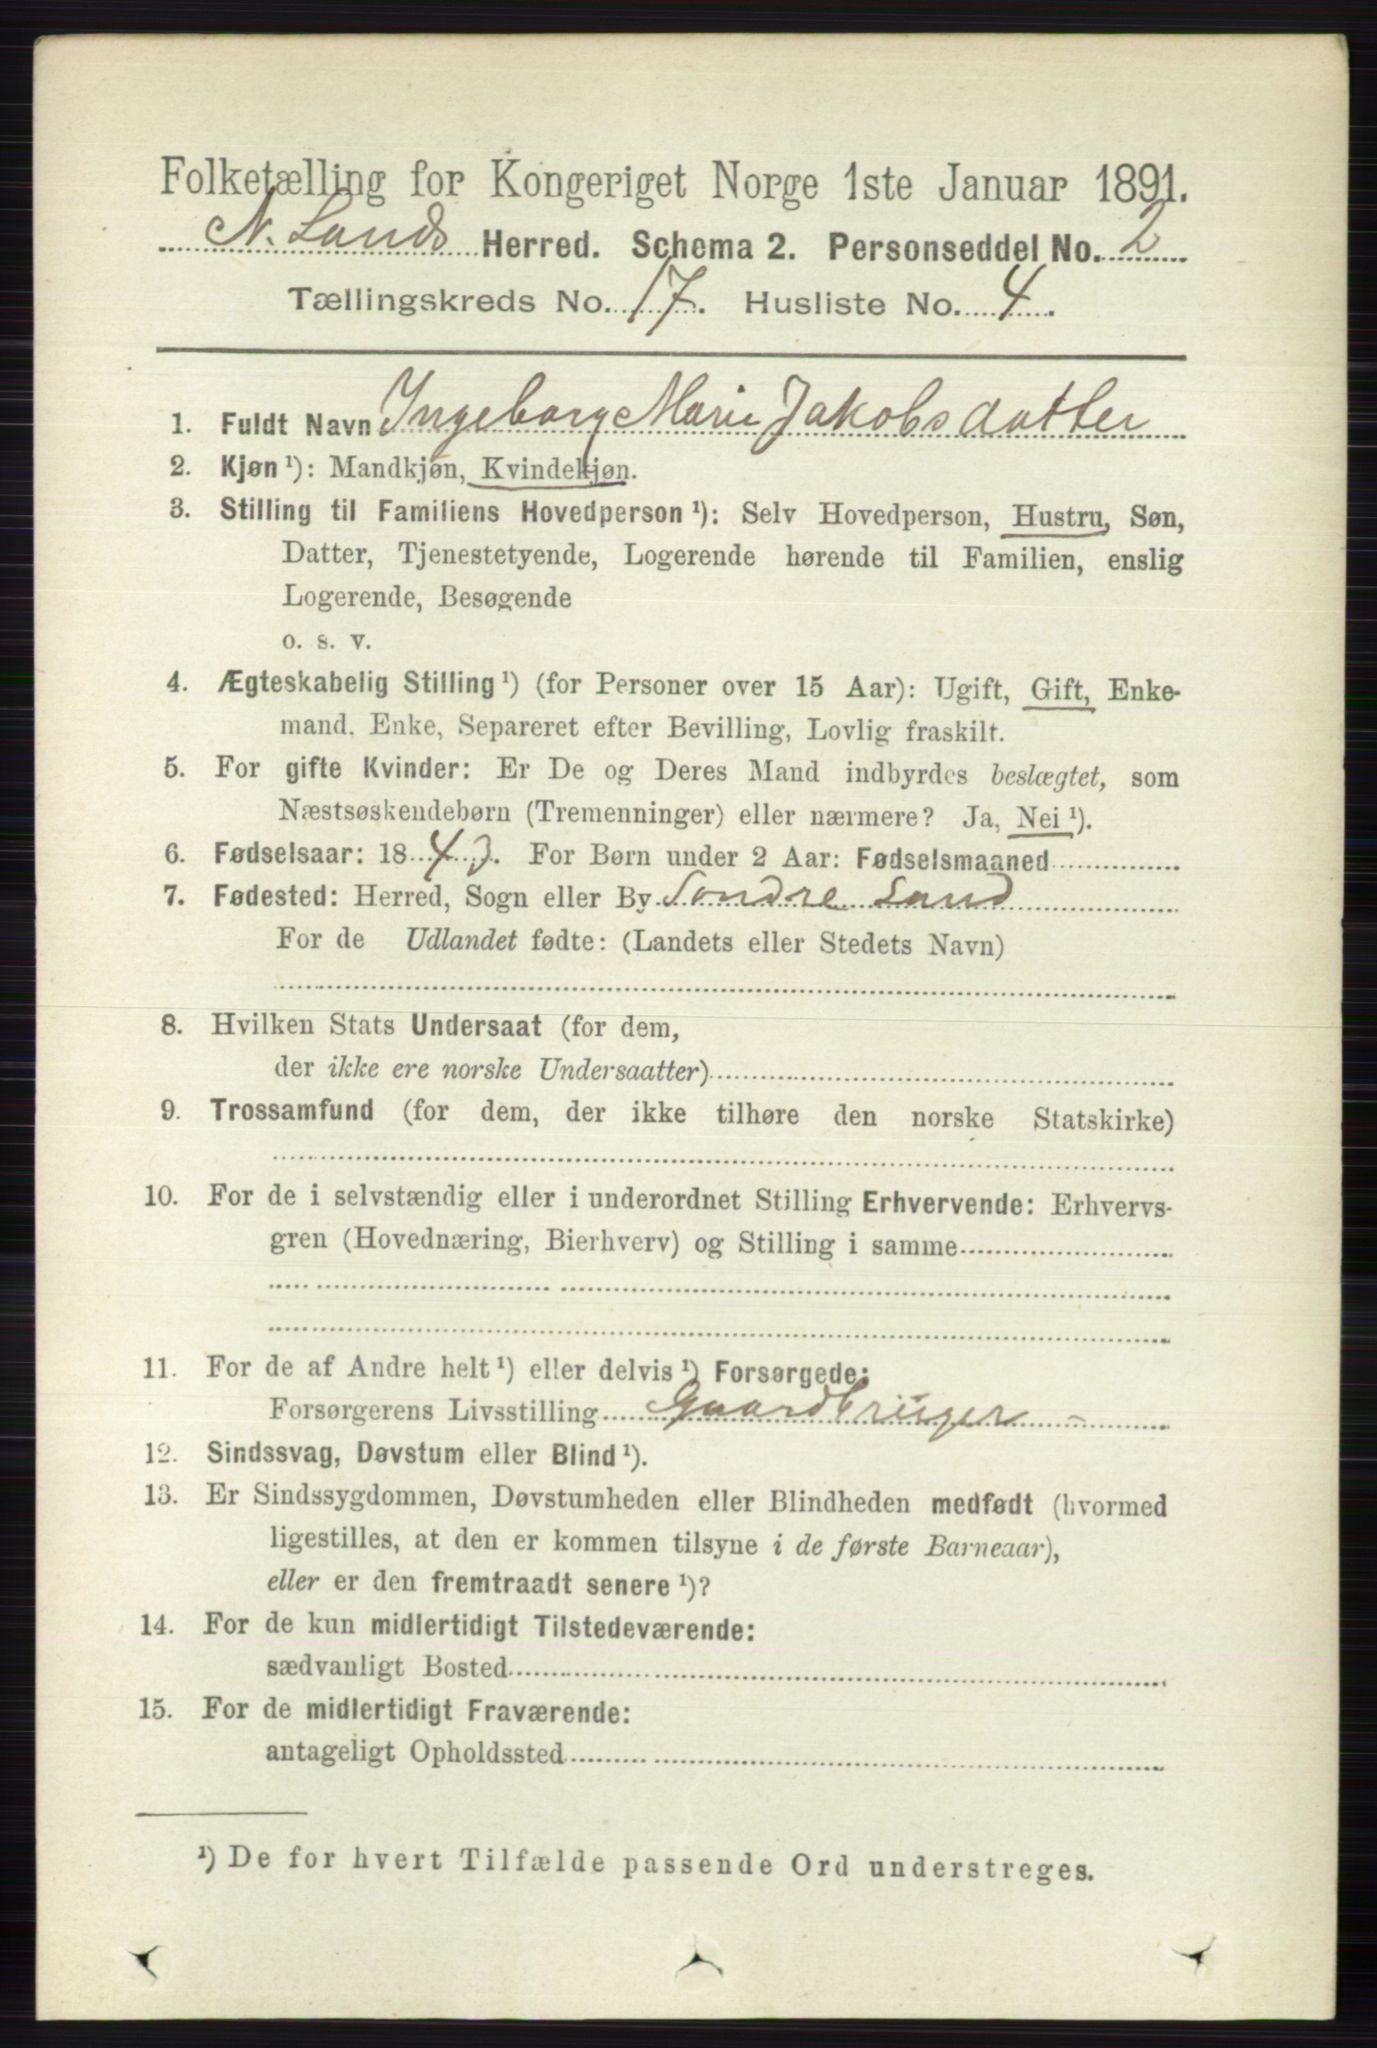 Folketælling for Kongeriget Norge 1ste Januar 1891.
N. Lands Herred. Schema 2. Personseddel No. 2
Tællingskreds No. 17. Husliste No. 4.
1. Fuldt Navn Ingeborg Marie Jakobsdatter
2. Kjøn ¹): Mandkjøn, Kvindekjøn.
3. Stilling til Familiens Hovedperson ¹): Selv Hovedperson, Hustru, Søn,
Datter, Tjenestetyende, Logerende hørende til Familien, enslig
Logerende, Besøgende
o. s. v.
4. Ægteskabelig Stilling ¹) (for Personer over 15 Aar): Ugift, Gift, Enke-
mand, Enke, Separeret efter Bevilling, Lovlig fraskilt.
5. For gifte Kvinder: Er De og Deres Mand indbyrdes beslægtet, som
Næstsøskendebørn (Tremenninger) eller nærmere? Ja, Nei ¹).
6. Fødselsaar: 1843. For Børn under 2 Aar: Fødselsmaaned
7. Fødested: Herred, Sogn eller By Sondre Land
For de Udlandet fødte: (Landets eller Stedets Navn)
8. Hvilken Stats Undersaat (for dem,
der ikke ere norske Undersaatter)
9. Trossamfund (for dem, der ikke tilhøre den norske Statskirke)
10. For de i selvstændig eller i underordnet Stilling Erhvervende: Erhvervs-
gren (Hovednæring, Bierhverv) og Stilling i samme
11. For de af Andre helt ¹) eller delvis ¹) Forsørgede:
Forsørgerens Livsstilling Gaardbruger -
12. Sindssvag, Døvstum eller Blind ¹).
13. Er Sindssygdommen, Døvstumheden eller Blindheden medfødt (hvormed
ligestilles, at den er kommen tilsyne i de første Barneaar),
eller er den fremtraadt senere ¹)?
14. For de kun midlertidigt Tilstedeværende:
sædvanligt Bosted
15. For de midlertidigt Fraværende:
antageligt Opholdssted
¹) De for hvert Tilfælde passende Ord understreges.